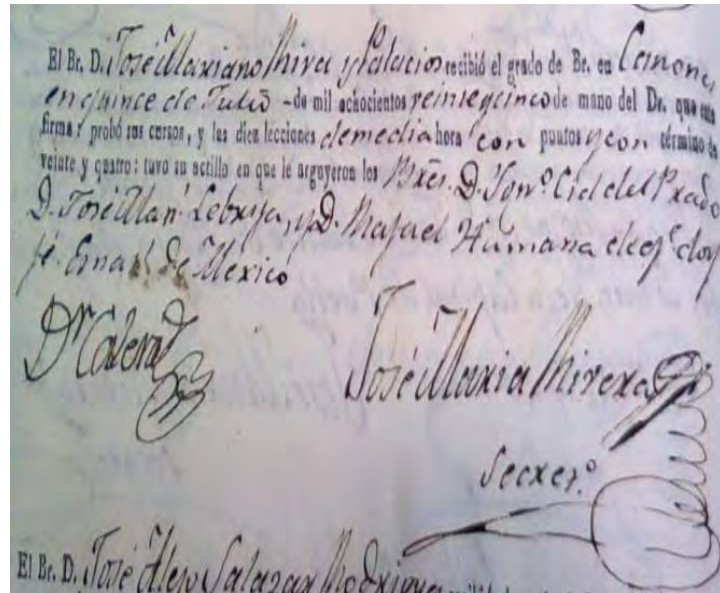 El Br. D. José Mariano Riva y Palacios recibió el grado de Br. en Canones
en quince de Julio - de mil achocientos veinteycinco de mano del Dr. que esta
firma: probó sus cursos, y las diez lecciones demedia hora con puntos y con término de
veinte y quatro: tuvo su actillo en que le arguyeron los Brês. D. Cid del Prado
D. José Man. Lebrija, y D. Rafael Humana de q.e doy
fé. de Mexico
Dr.
José Maria Rivera
Secret.o
El Br. D. José Salazar Rodrigues